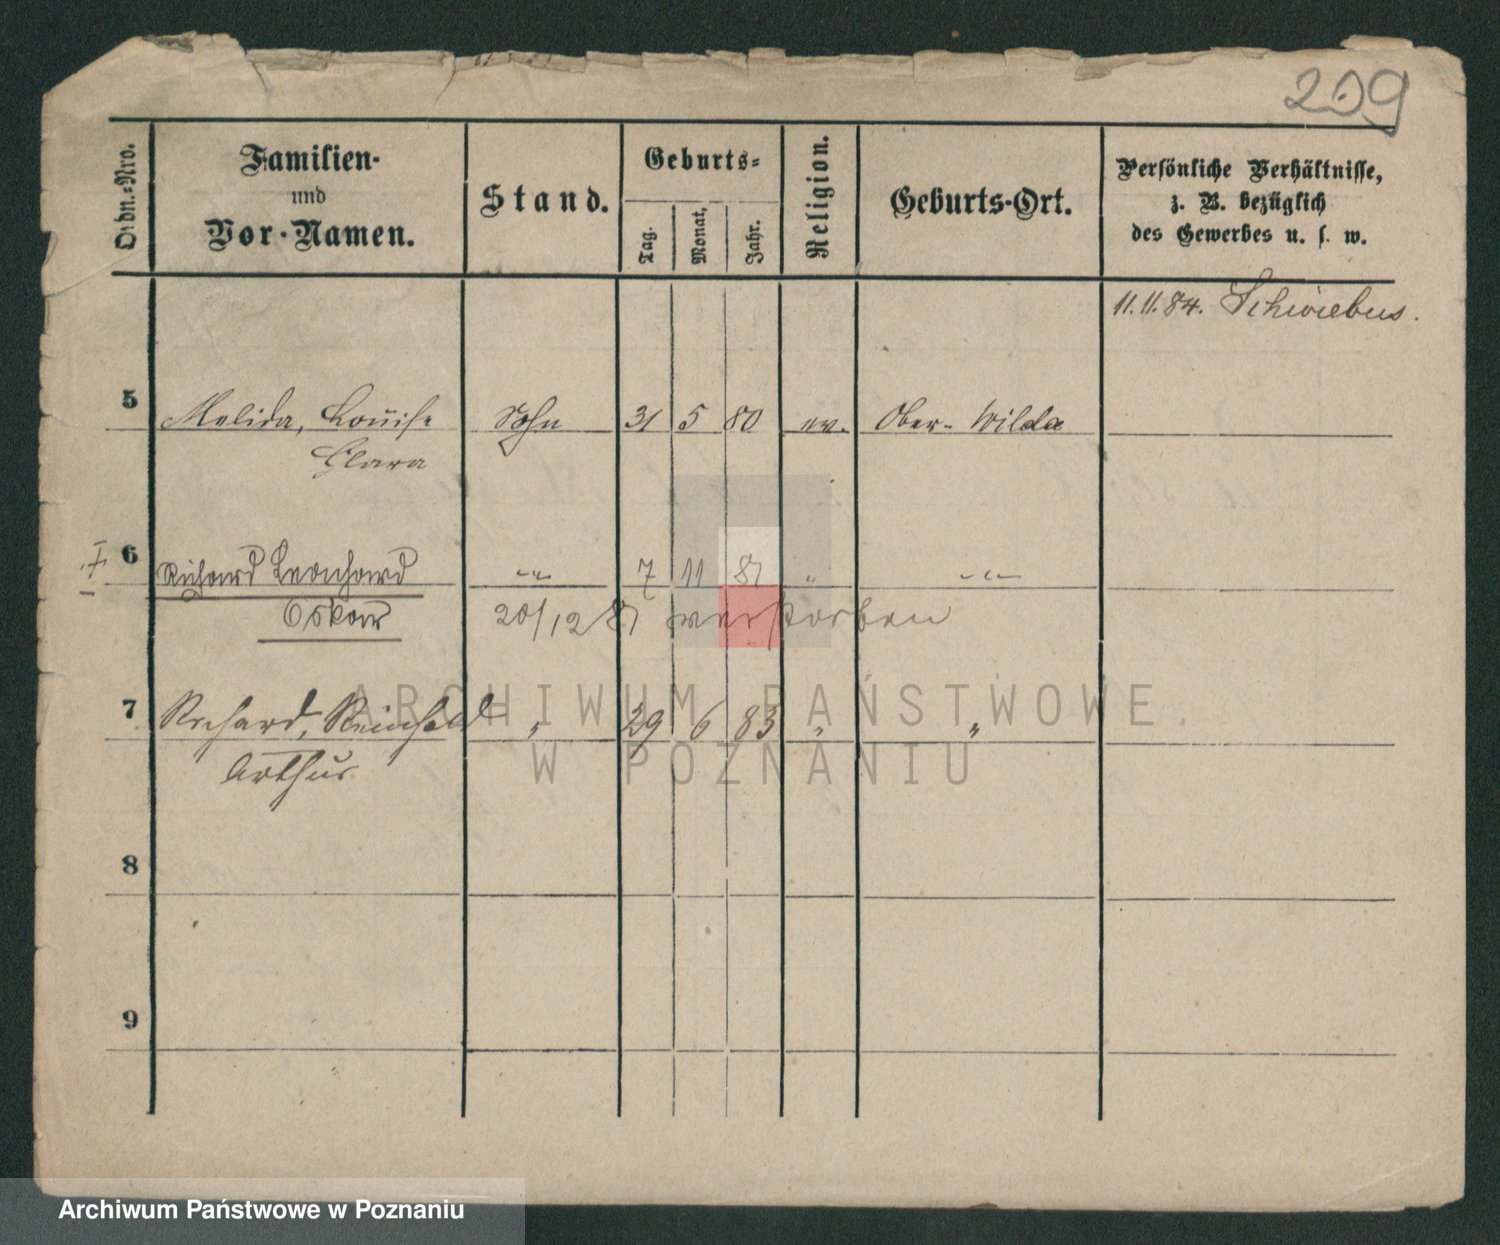 209
Ordn.-Nro.
Familien-
und
Vor-Namen.
Stand.
Geburts-
Tag.
Monat,
Jahr.
Religion.
Geburts-Ort.
Persönliche Verhältnisse,
z. B. bezüglich
des Gewerbes u. s. w.
11.11.84. Schwiebus.
5 Melida, Louise Sohn 31 5 80 ev. Ober-Wilda
Clara
6 Richard Leonhard " 7 11 81 " "
Oskar 20/12 81 verstorben
7 Richard, Reinhold " 29 6 83 " "
Arthur
8
9
ARCHIWUM PAŃSTWOWE
W POZNANIU
Archiwum Państwowe w Poznaniu